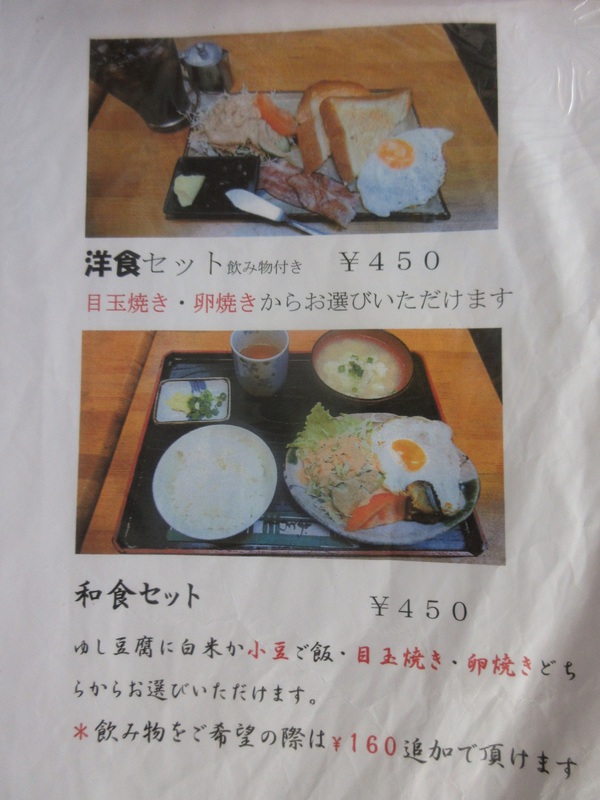 洋食セット飲み物付き ￥４５０
目玉焼き・卵焼きからお選びいただけます
和食セット ￥４５０
ゆし豆腐に白米か小豆ご飯・目玉焼き・卵焼きどち
らからお選びいただけます。
＊飲み物をご希望の際は￥160追加で頂けます